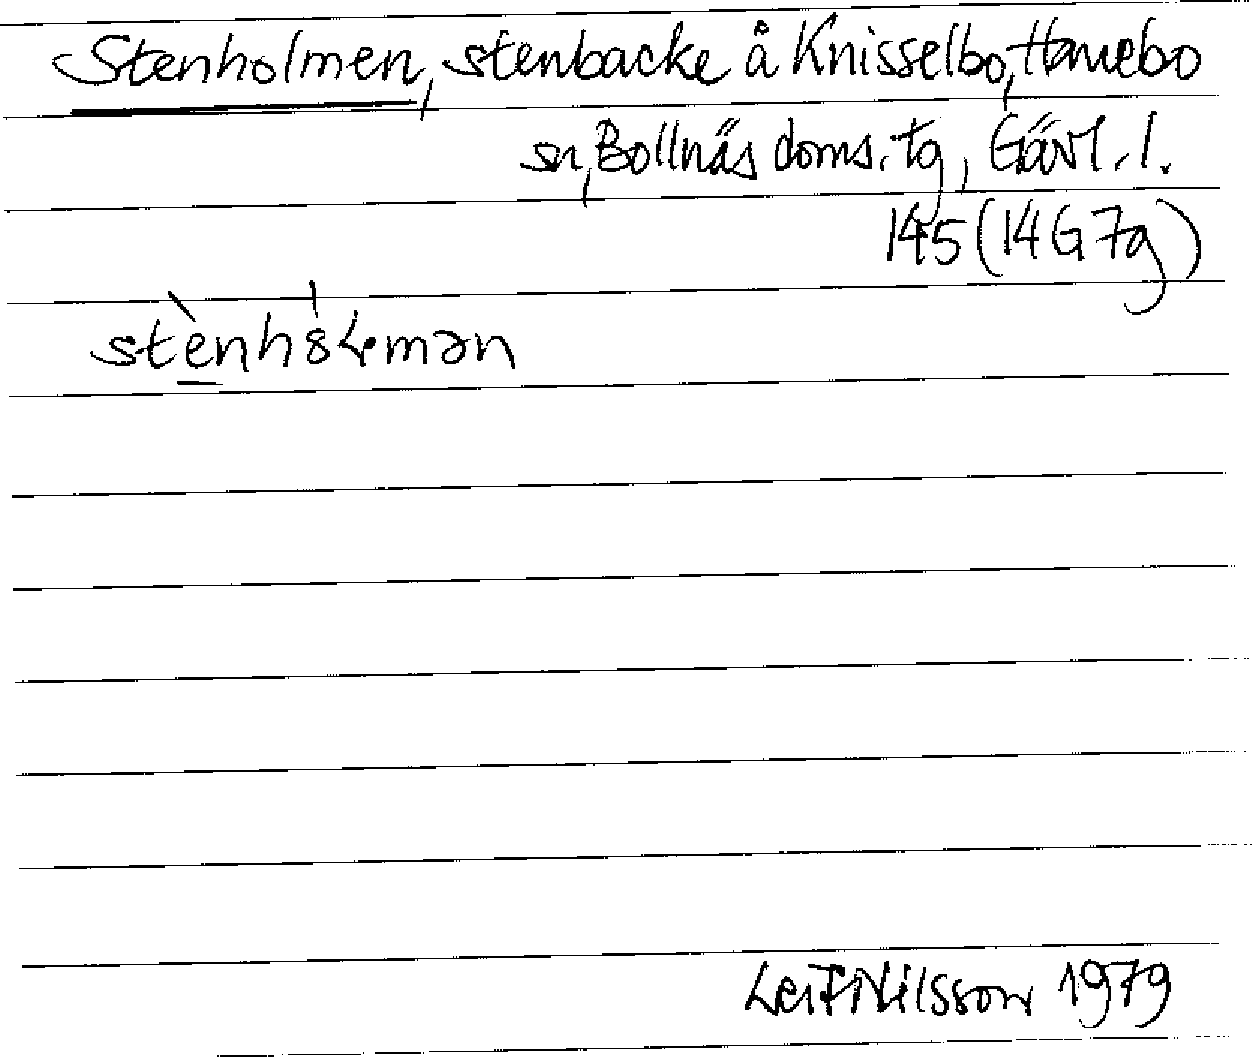 Stenholmen, stenbacke å Knisselbo, Hanebo
sn, Bollnäs doms. tg, Gävl. l.
145 (14G 7g)
Leif Nilsson 1979